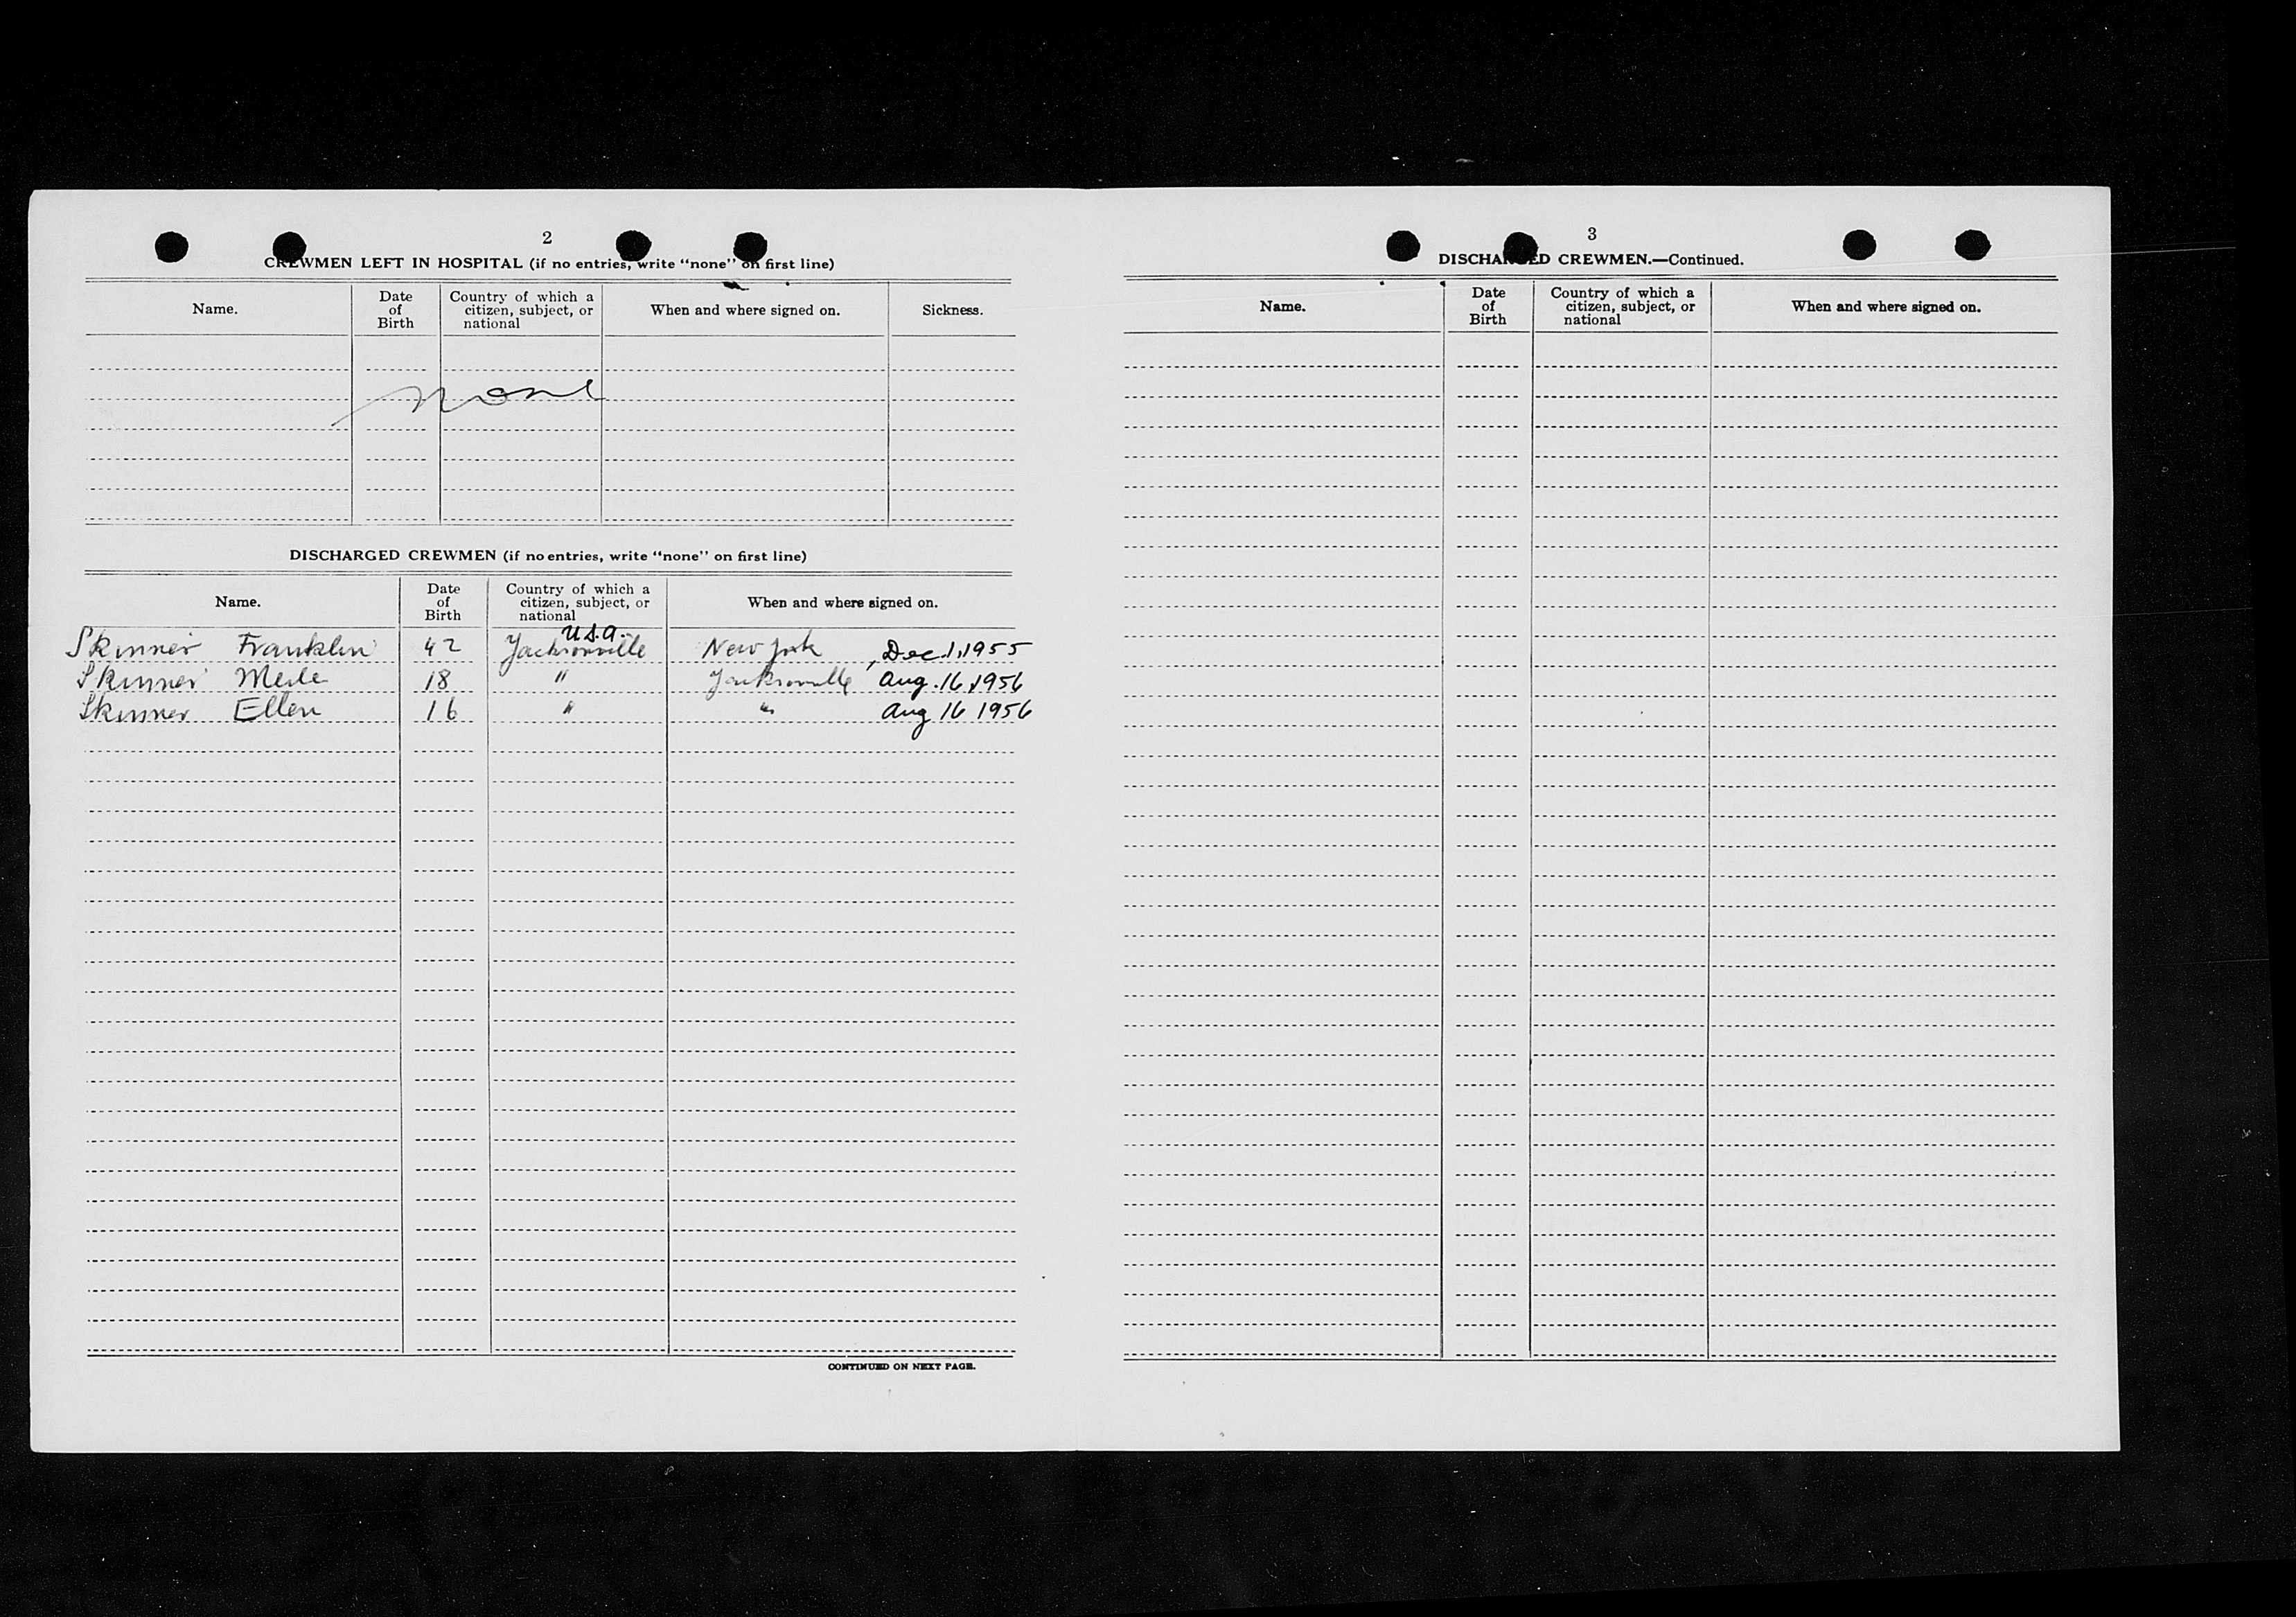 2
CREWMEN LEFT IN HOSPITAL (if no entries, write "none" on first line)
Name. Date of Birth Country of which a citizen, subject, or national When and where signed on. Sickness.
none
DISCHARGED CREWMEN (if no entries, write "none" on first line)
Name. Date of Birth Country of which a citizen, subject, or national When and where signed on.
U.S.A.
Skinner Franklin 42 Jacksonville New York, Dec. 1, 1955
Skinner 18 " Jacksonville Aug. 16, 1956
Skinner Ellen 16 " " Aug 16 1956
CONTINUED ON NEXT PAGE.
3
DISCHARGED CREWMEN.—Continued.
Name. Date of Birth Country of which a citizen, subject, or national When and where signed on.